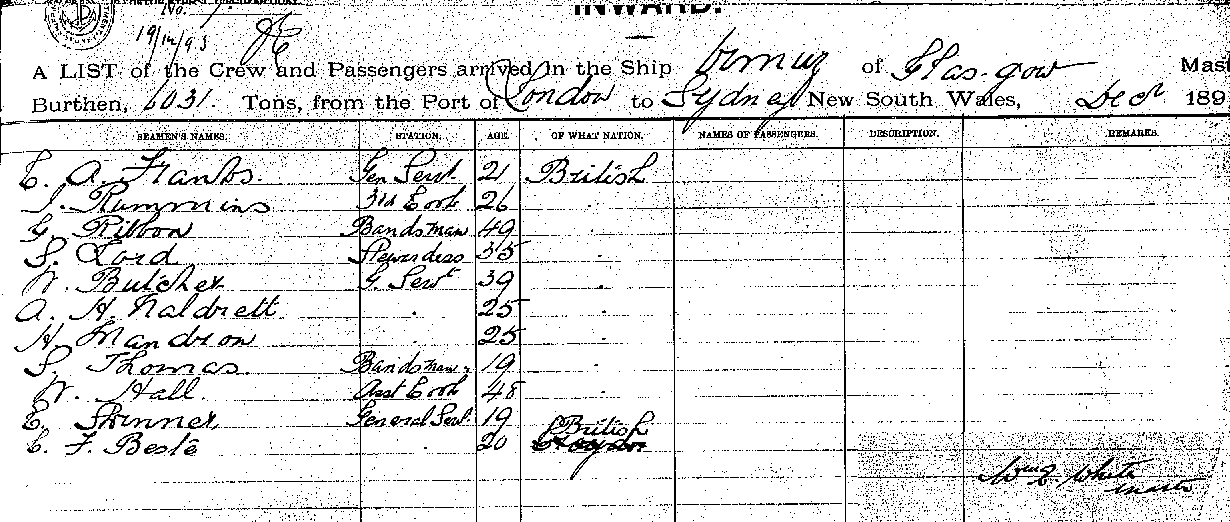 INWARD.
No. 7.
19/12/93
A LIST of the Crew and Passengers arrived in the Ship Ormuz of Glasgow Mast
Burthen, 6031. Tons, from the Port of London to Sydney New South Wales, Decr 189
SEAMEN'S NAMES. STATION. AGE. OF WHAT NATION. NAMES OF PASSENGERS. DESCRIPTION. REMARKS.
E. A. Franks. Gen Servt. 21 British
J. Rummins 3rd Cook 26 .
G. Ribbon Bandsman 49 .
S. Lord Stewardess 35 .
W. Butcher G. Servt 39 .
A. H. Naldrett . 25 .
H. Mandron 25 .
S. Thomas. Bandsman. 19 .
W. Hall. Asst Cook 48 .
E. Skinner General Servt. 19
C. F. Beste . 20 British
Wm E. White
master